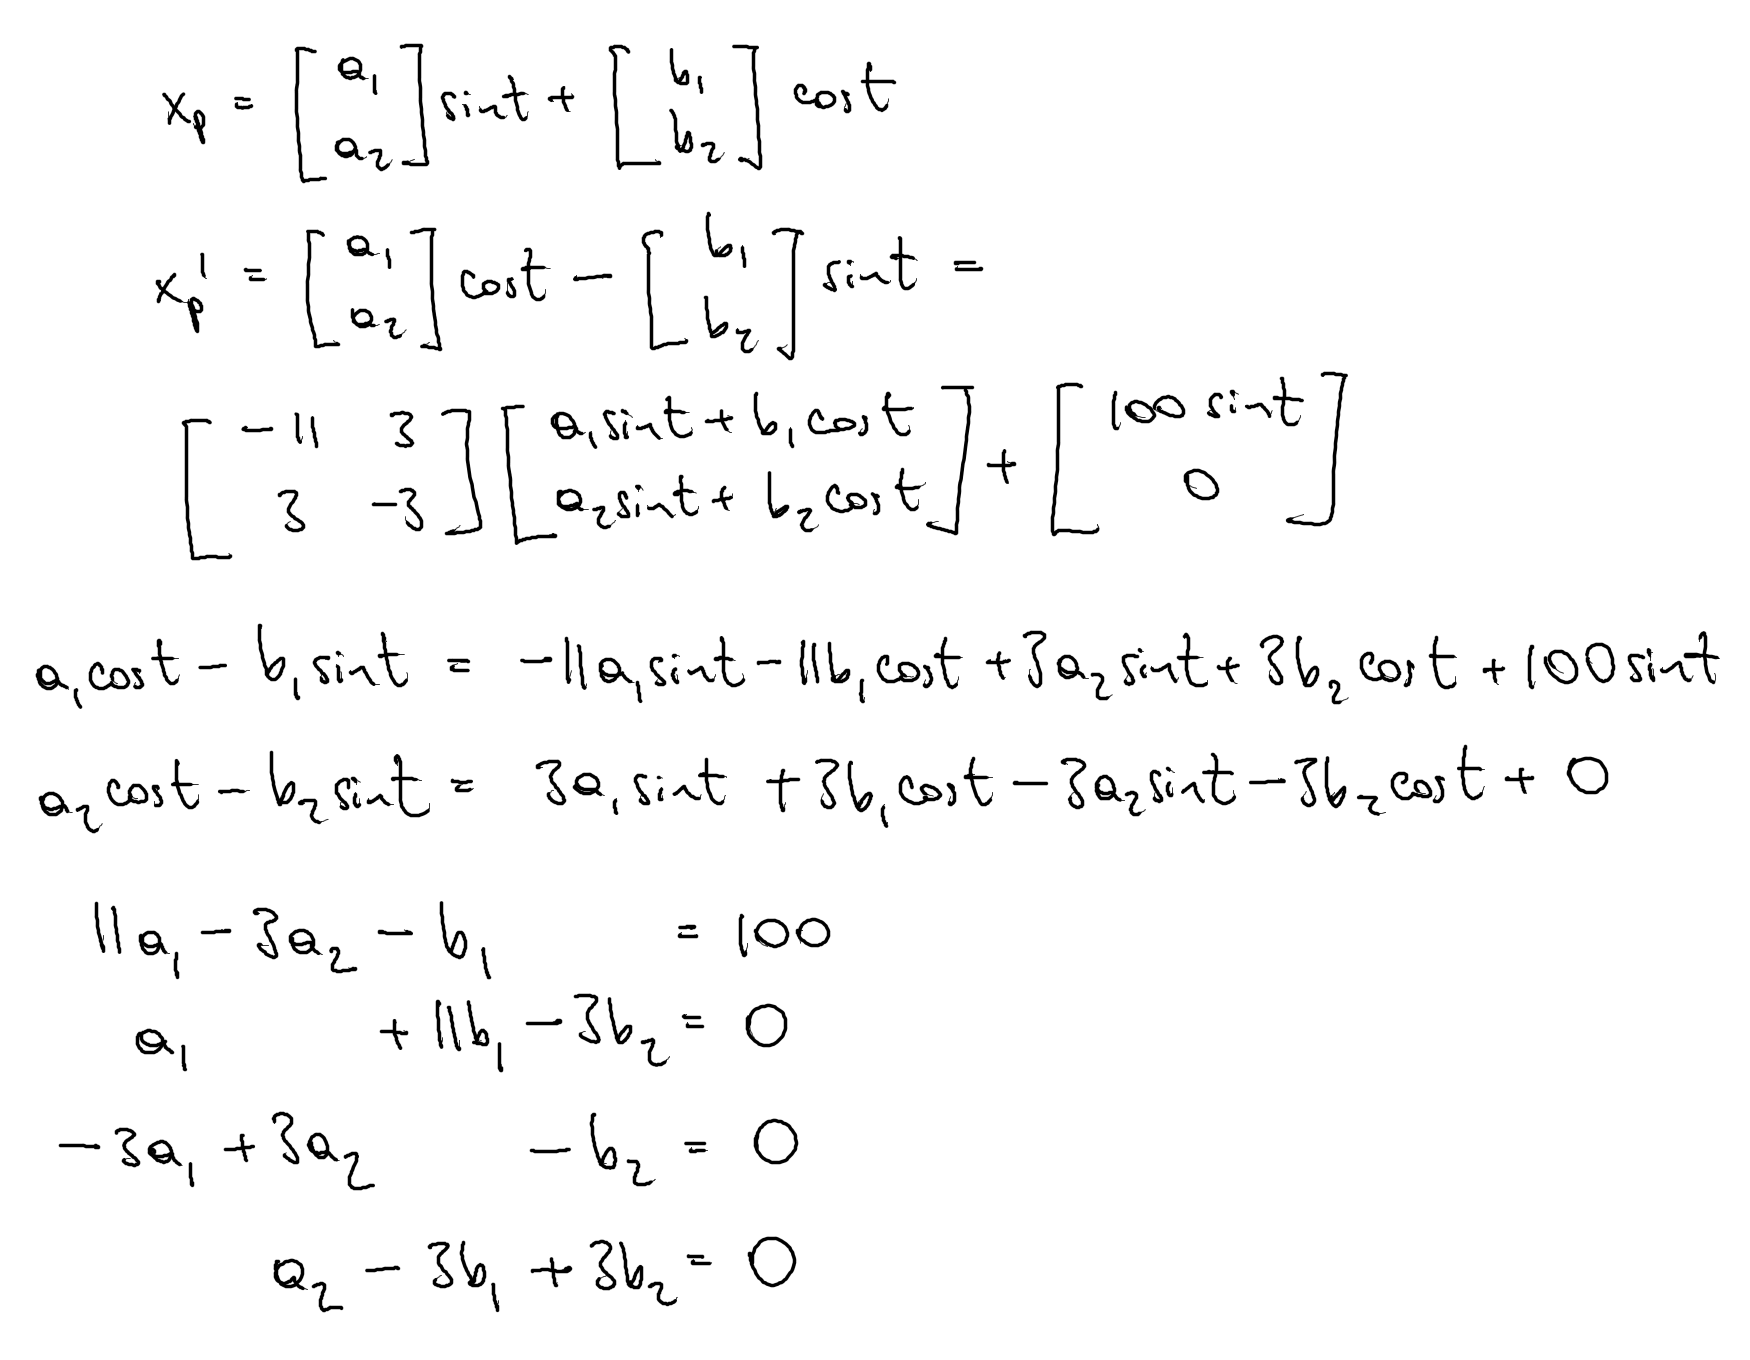 x_p = [a_1; a_2] sint + [b_1; b_2] cost
x_p' = [a_1; a_2] cost - [b_1; b_2] sint =
[-11 3; 3 -3] [a_1 sint + b_1 cost; a_2 sint + b_2 cost] + [100 sint; 0]
a_1 cost - b_1 sint = -11a_1 sint - 11b_1 cost + 3a_2 sint + 3b_2 cost + 100 sint
a_2 cost - b_2 sint = 3a_1 sint + 3b_1 cost - 3a_2 sint - 3b_2 cost + 0
11a_1 - 3a_2 - b_1 = 100
a_1 + 11b_1 - 3b_2 = 0
-3a_1 + 3a_2 - b_2 = 0
a_2 - 3b_1 + 3b_2 = 0